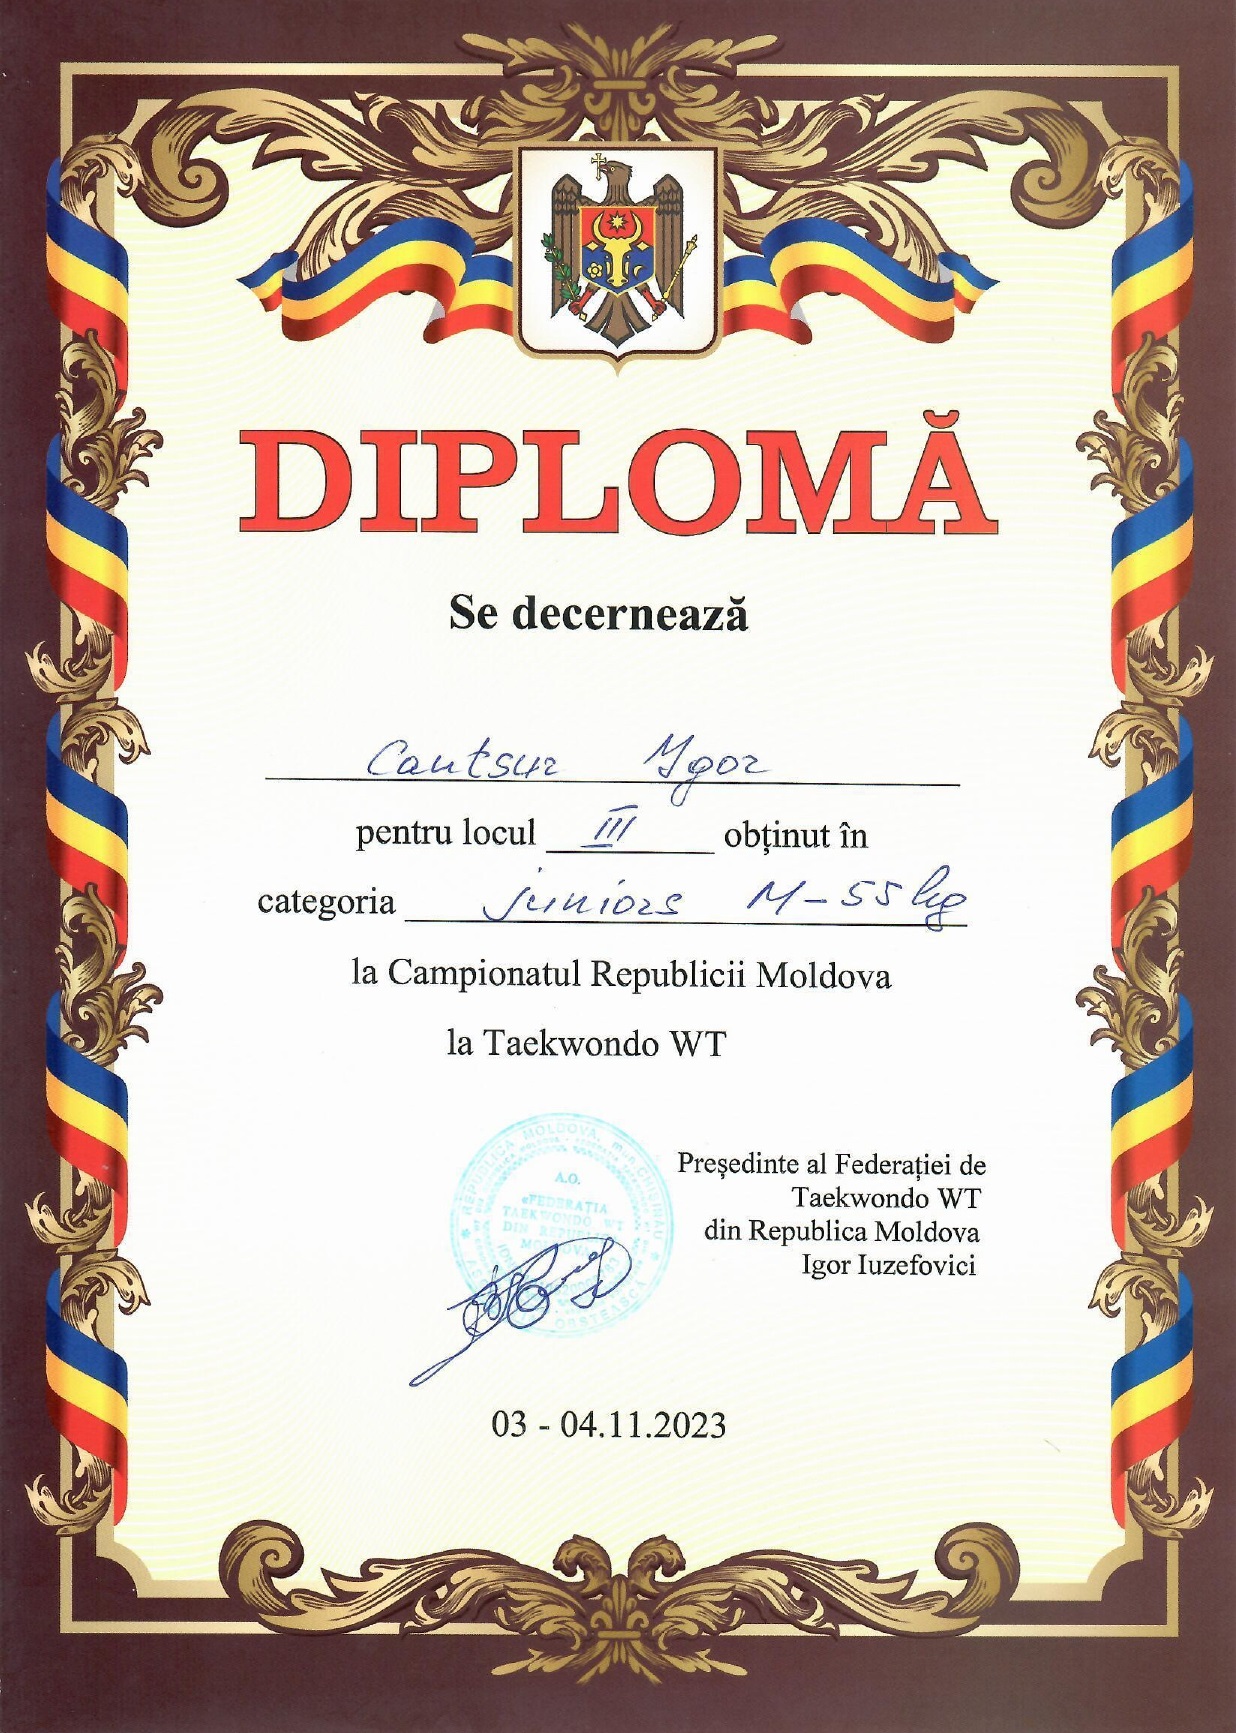 DIPLOMĂ
Se decernează
Cantsur Igor
pentru locul III obținut în
categoria juniors M-55 kg
la Campionatul Republicii Moldova
la Taekwondo WT
REPUBLICA MOLDOVA, mun. CHIȘINĂU
A.O.
«FEDERAȚIA
TAEKWONDO WT
DIN REPUBLICA
MOLDOVA»
OBȘTEASCĂ
Președinte al Federației de
Taekwondo WT
din Republica Moldova
Igor Iuzefovici
03 - 04.11.2023